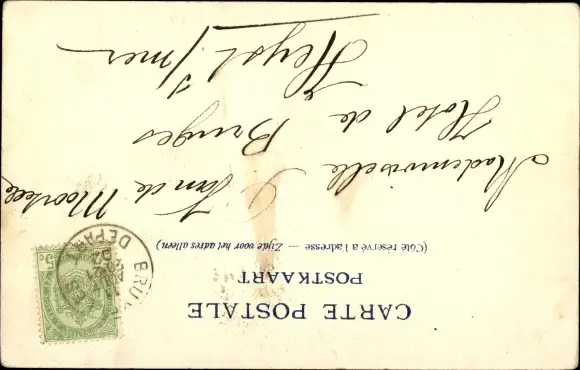 CARTE POSTALE
POSTKAART
(Côté réservé à l'adresse — Zijde voor het adres alleen.)
Mademoiselle J. Van de Moortele
Hotel de Bruges
Heyst s/mer
DEPART
5c